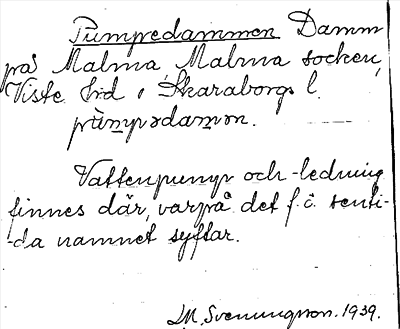 Pumpedammen Damm
på Malma Malma socken,
Viste hd i Skaraborgs l.
pùmpədamən.
Vattenpump och -ledning
finnes där, varpå det f. ö.
-da namnet syftar.
M. Svenungsson. 1939.